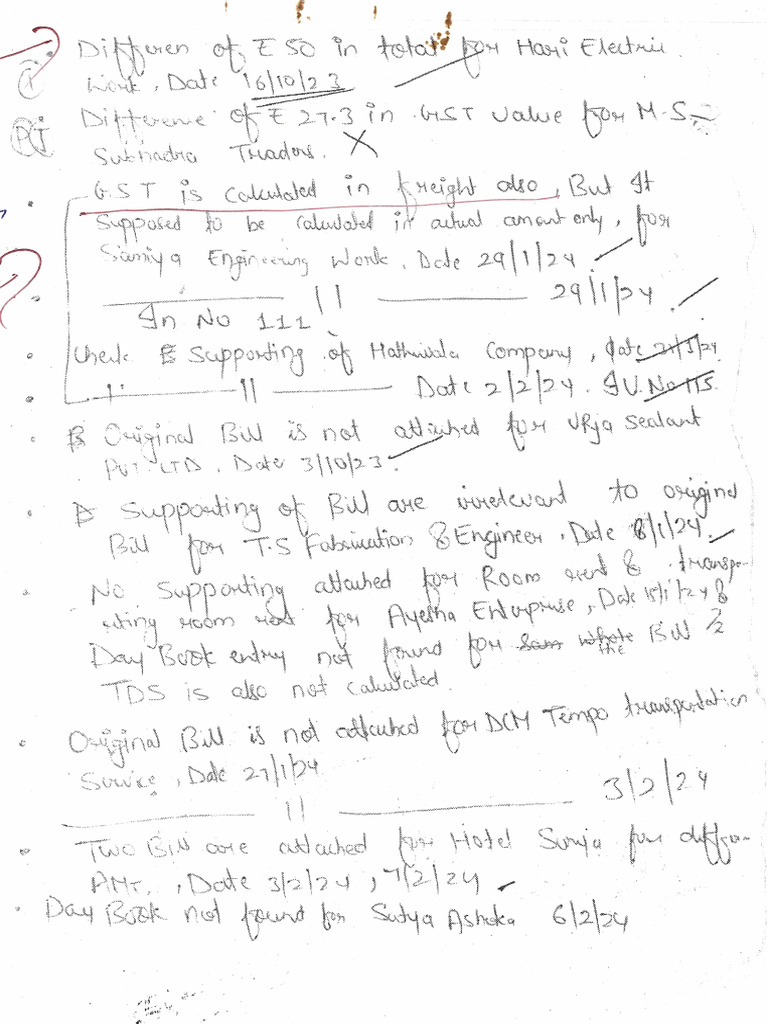 Differen of ₹ 50 in total for Hari Electric
Work, Date 16/10/23
Difference of ₹ 27.3 in GST value for M.S
Subhadra Traders. X
G.S.T is calculated in freight also, But It
Supposed to be calculated in actual amount only, for
Samiya Engineering Work, Date 29/1/24
—— 11 —— 29/1/24
In No 111
Check Supporting of Company, Date
—— 11 —— Date 2/2/24. No 115
Original Bill is not attached for Urja Sealant
PVT LTD. Date 3/10/23
Supporting of Bill are irrelevant to original
Bill for T.S Fabrication & Engineer, Date 8/1/24
No Supporting attached for Room rent & transpo-
rting room rent for Ayesha Enterprise, Date 15/1/24 &
Day Book entry not found for the Bill
TDS is also not calculated.
Original Bill is not attached for DCM Tempo transportation
Service, Date 27/1/24
—— 11 —— 3/2/24
Two Bill are attached for Hotel for
AMT., Date 3/2/24, 7/2/24
Day Book not found for Satya Ashoka 6/2/24